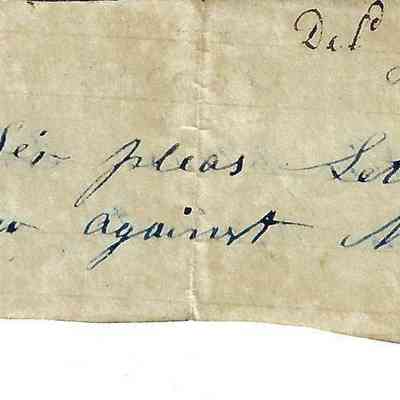 Del^d
Sir pleas Let
against